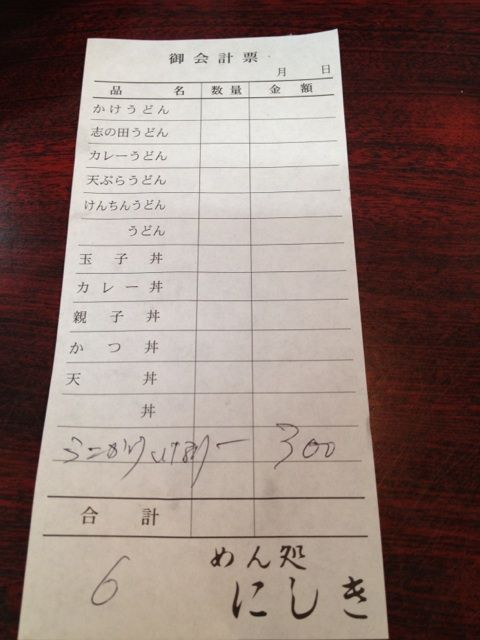 御会計票
月 日
品 名 数量 金 額
かけうどん
志の田うどん
カレーうどん
天ぷらうどん
けんちんうどん
うどん
玉子丼
カレー丼
親子丼
かつ丼
天 丼
丼
300
合計
6
めん処
にしき